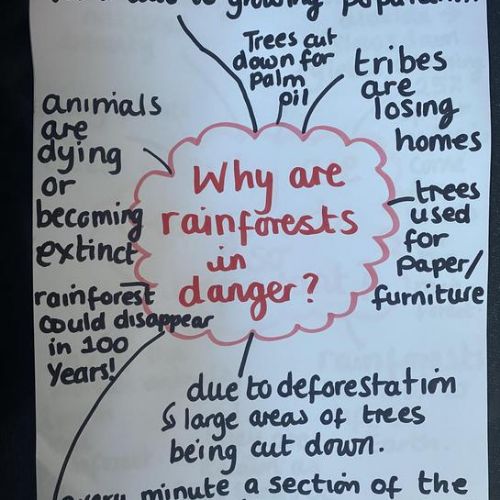 to growing population
Trees cut
down for
palm
pil
tribes
are
losing
homes
animals
are
dying
or
becoming
extinct
Why are
rainforests
in
danger?
trees
used
for
paper/
furniture
rainforest
could disappear
in 100
years!
due to deforestation
↳ large areas of trees
being cut down.
every minute a section of the